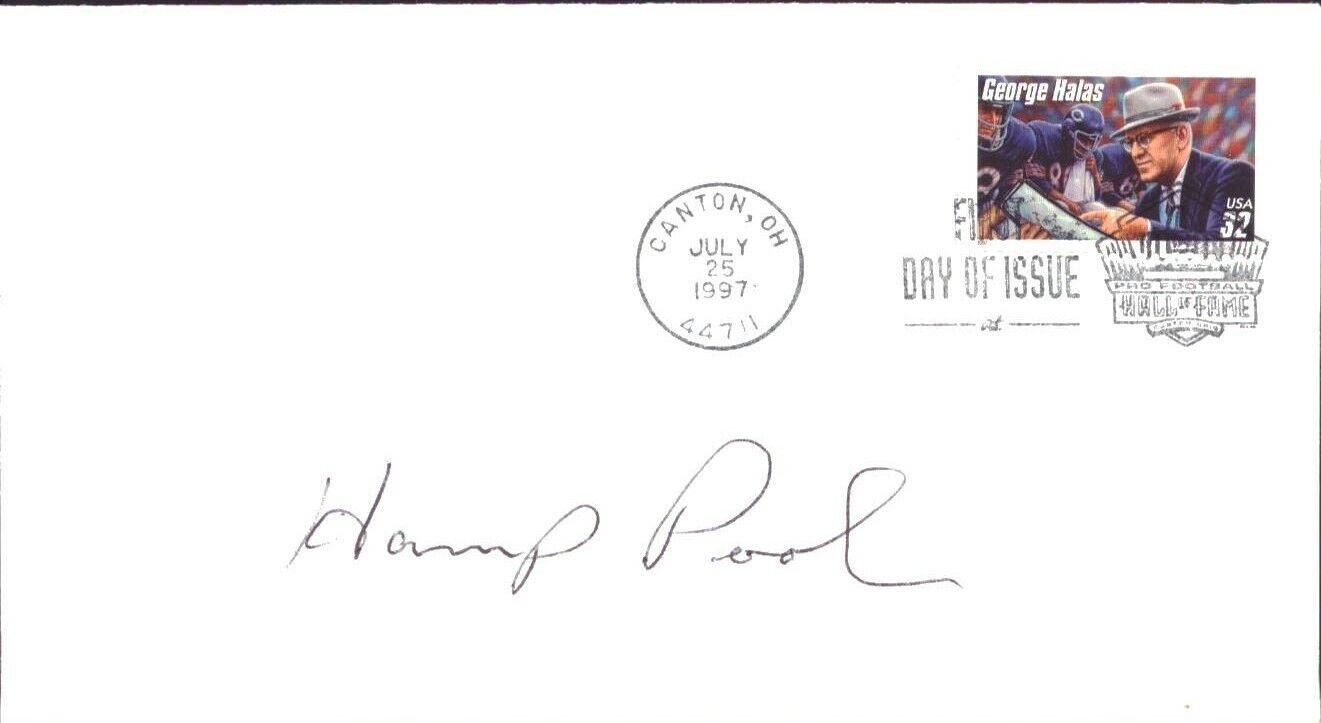 George Halas
USA
32
CANTON, OH
JULY
25
1997
44711
DAY OF ISSUE
at
PRO FOOTBALL
HALL OF FAME
CANTON OHIO
Hamp Pool